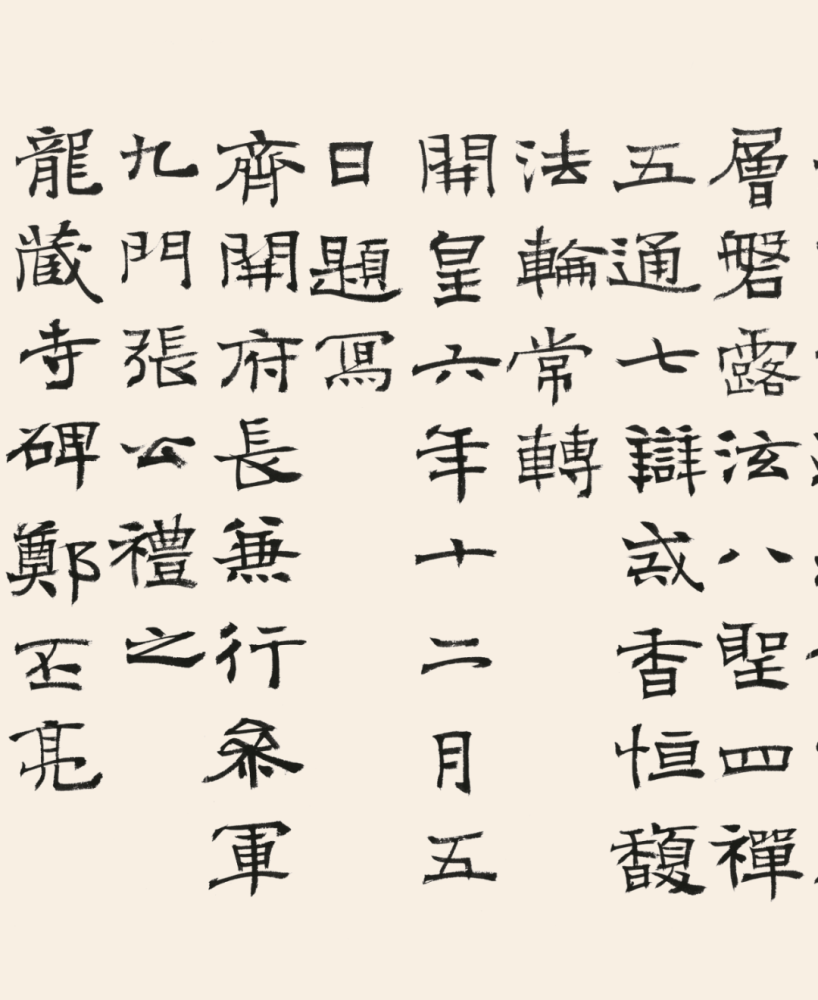 層磐露泫八聖四禪
五通七辯惑香恒馥
法輪常轉
開皇六年十二月五
日題寫
齊開府長兼行叅軍
九門張公禮之
龍藏寺碑鄭丕亮